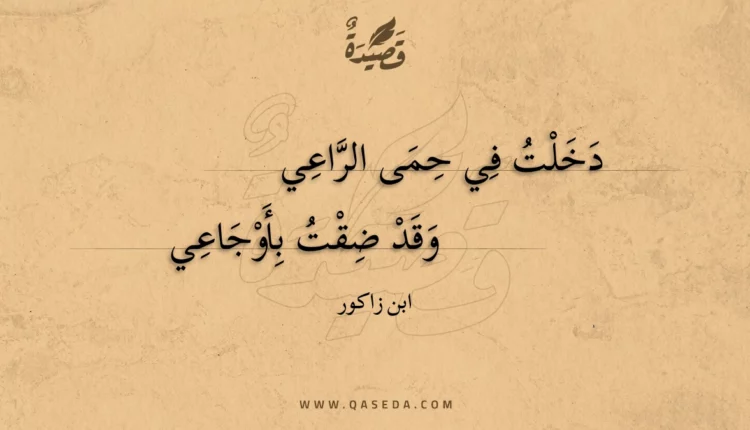 قَصِيْدَةٌ
دَخَلْتُ فِي حِمَى الرَّاعِي
وَقَدْ ضِقْتُ بِأَوْجَاعِي
ابن زاكور
WWW.QASEDA.COM